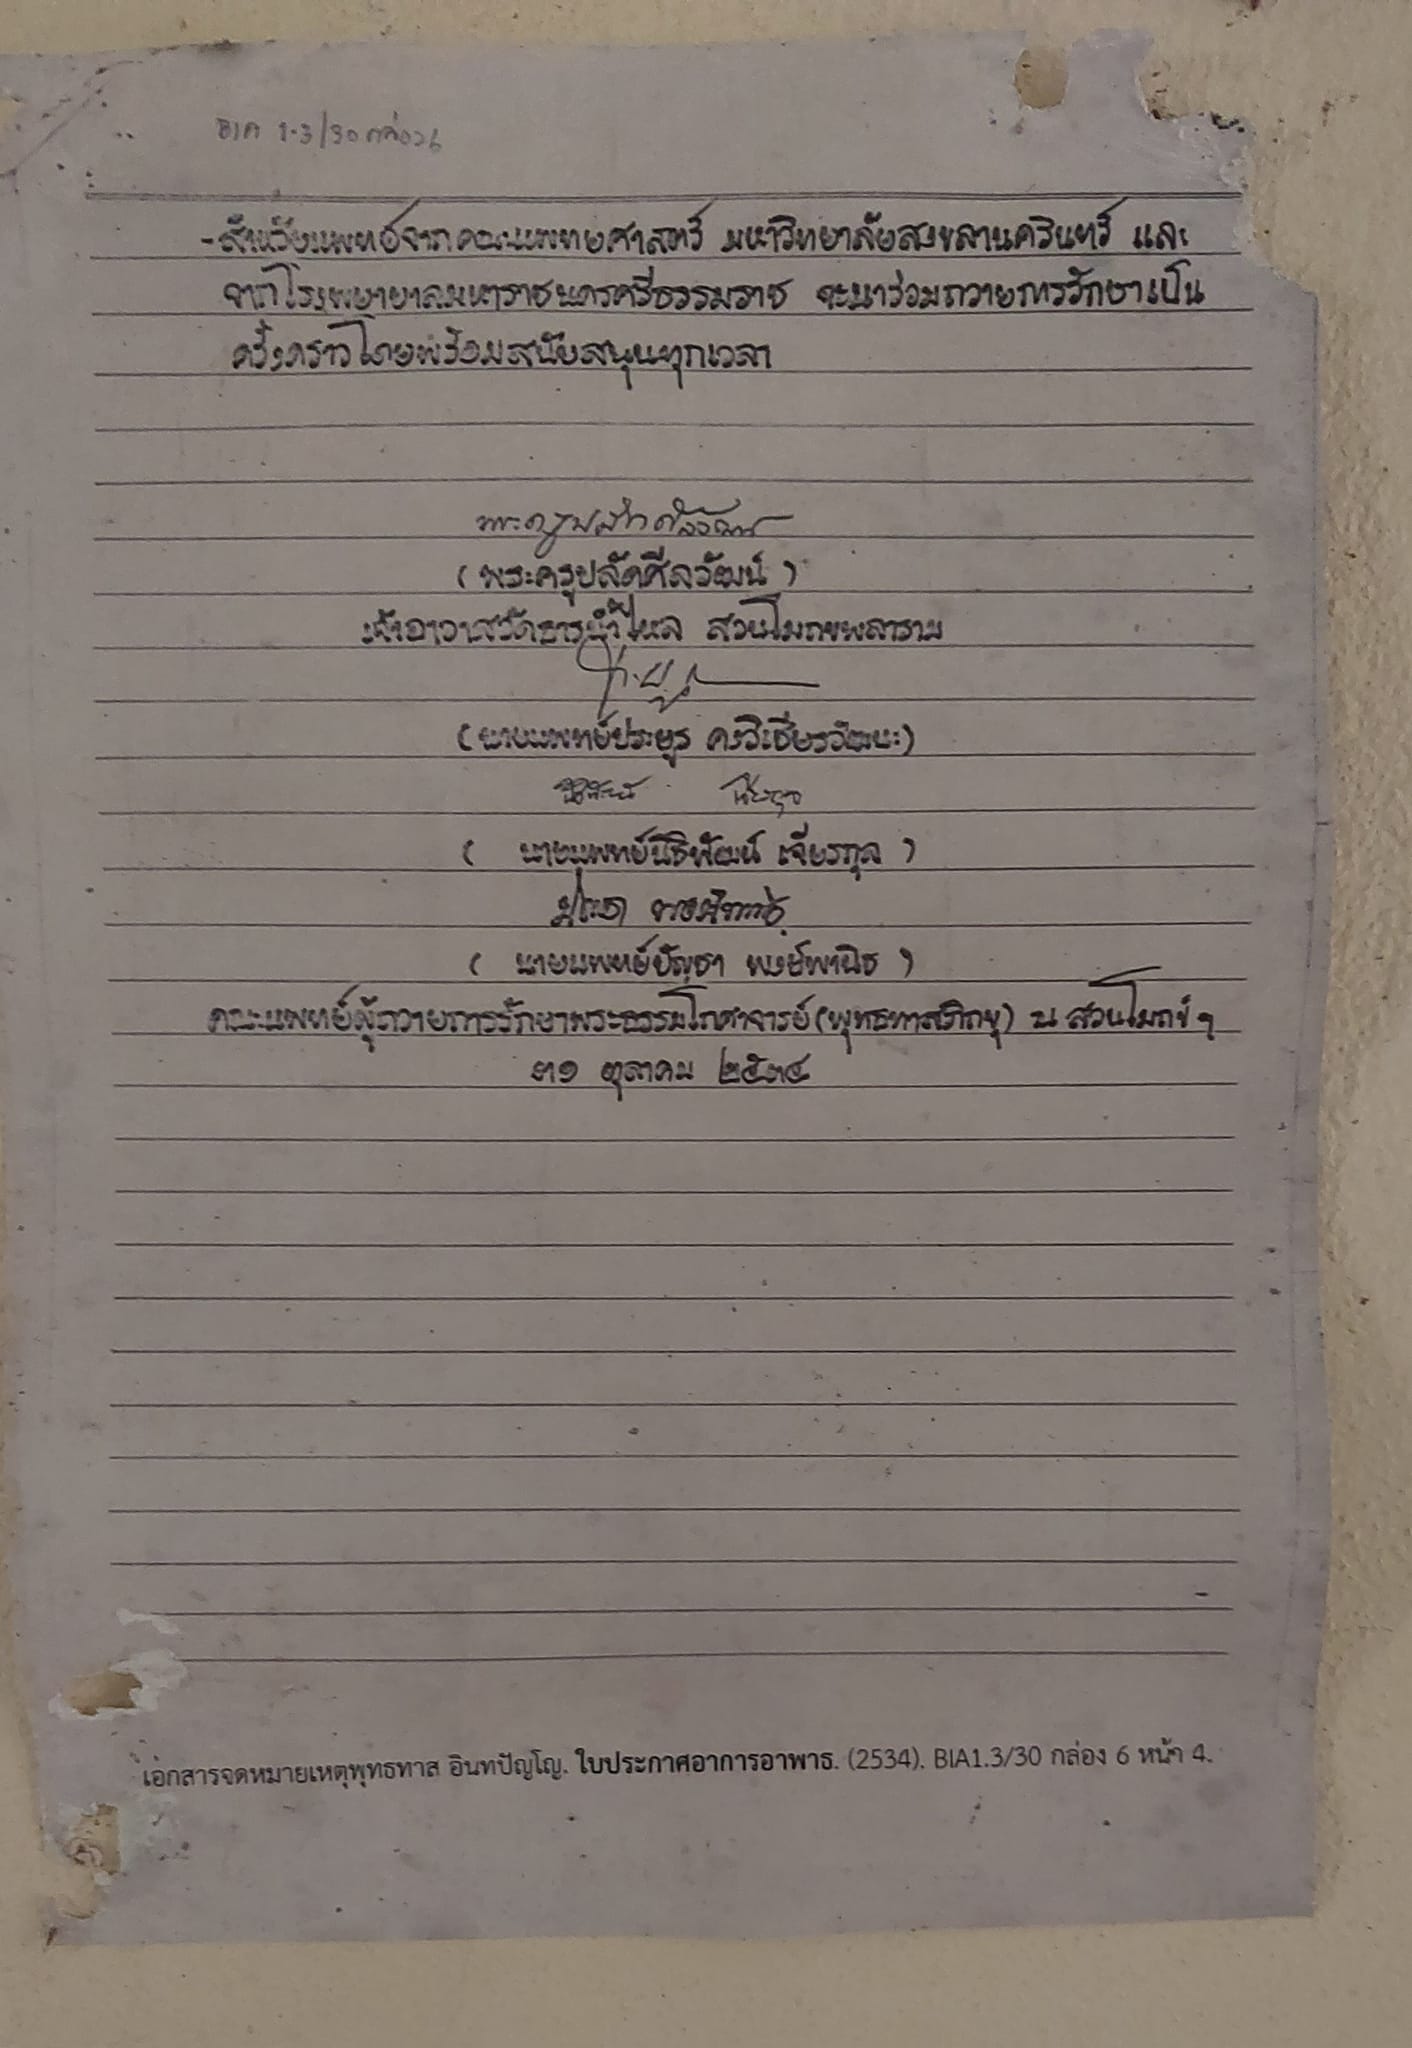 BIA 1.3/30 กล่อง 6
- สำหรับแพทย์จากคณะแพทยศาสตร์ มหาวิทยาลัยสงขลานครินทร์ และ
จากโรงพยาบาลมหาราชนครศรีธรรมราช จะมาร่วมถวายการรักษาเป็น
ครั้งคราวโดยพร้อมสนับสนุนทุกเวลา
พระครูปลัดศีลวัฒน์
(พระครูปลัดศีลวัฒน์)
เจ้าอาวาสวัดธารน้ำไหล สวนโมกขพลาราม
(นายแพทย์ประยูร คงวิเชียรวัฒนะ)
นิธิพัฒน์ เจียรกุล
( นายแพทย์นิธิพัฒน์ เจียรกุล )
บัญชา พงษ์พานิช
( นายแพทย์บัญชา พงษ์พานิช )
คณะแพทย์ผู้ถวายการรักษาพระธรรมโกศาจารย์(พุทธทาสภิกขุ) ณ สวนโมกข์ฯ
๓๑ ตุลาคม ๒๕๓๔
เอกสารจดหมายเหตุพุทธทาส อินทปัญโญ. ใบประกาศอาการอาพาธ. (2534). BIA1.3/30 กล่อง 6 หน้า 4.